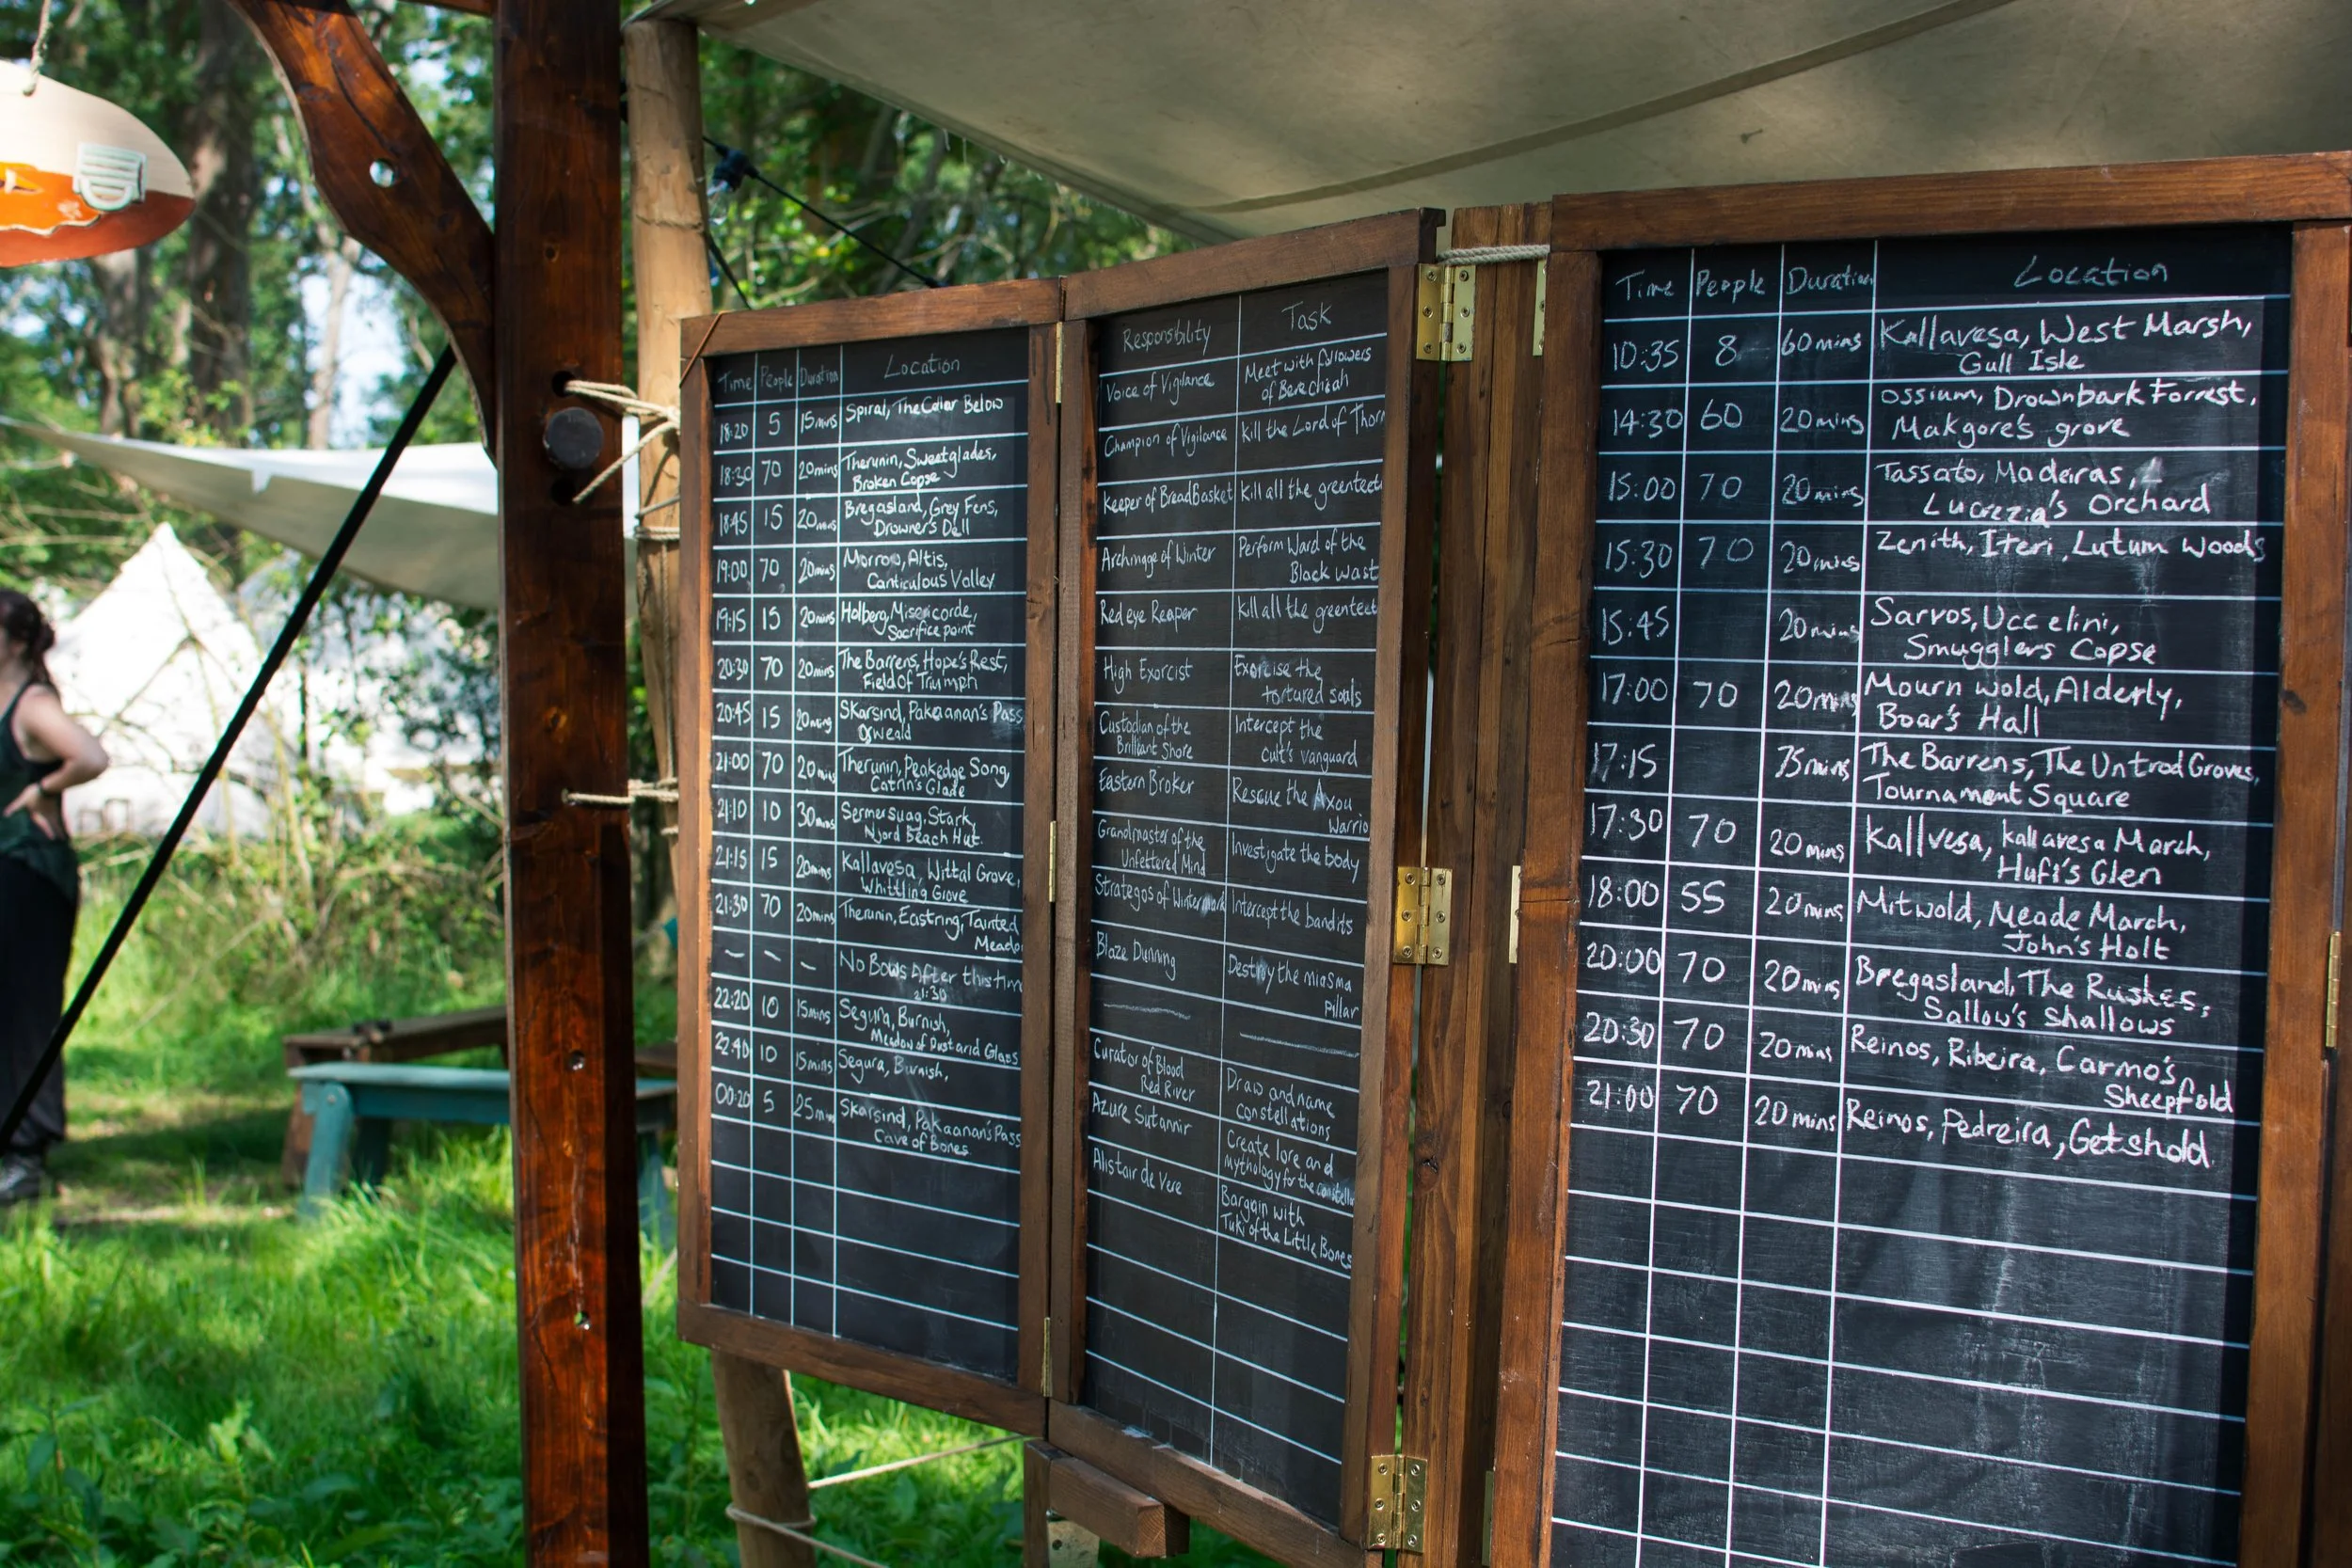 Time People Duration Location
18:20 5 15mins Spiral, The Cellar Below
18:30 70 20mins Therunin, Sweetglades,
Broken Copse
18:45 15 20mins Bregasland, Grey Fens,
Drowner's Dell
19:00 70 20mins Morrow, Altis,
Canticulous Valley
19:15 15 20mins Holberg, Misericorde,
Sacrifice point
20:30 70 20mins The Barrens, Hope's Rest,
Field Of Triumph
20:45 15 20mins Skarsind, Pakaanan's Pass
Osweald
21:00 70 20mins Therunin, Peakedge Song,
Catrin's Glade
21:10 10 30mins Sermersuaq, Stark,
Njord Beach Hut.
21:15 15 20mins Kallavesa, Wittal Grove,
Whittling Grove
21:30 70 20mins Therunin, Eastring, Tainted
Meado
– – – No Bows After this tim
21:30
22:20 10 15mins Segura, Burnish,
Meadow of Dust and Glass
22:40 10 15mins Segura, Burnish,
00:20 5 25mins Skarsind, Pakaanan's Pass
Cave of Bones.
Responsibility Task
Voice of Vigilance Meet with followers
of Berechiah
Champion of Vigilance Kill the Lord of Thorn
Keeper of BreadBasket Kill all the greenteeth
Archmage of Winter Perform Ward of the
Black Wast
Red eye Reaper Kill all the greenteet
High Exorcist Exorcise the
tortured souls
Custodian of the Intercept the
Brilliant Shore Cult's vanguard
Eastern Broker Rescue the Axou
Warrio
Grandmaster of the Investigate the body
Unfettered Mind
Strategos of Wintermark Intercept the bandits
Blaze Dunning Destroy the miasma
Pillar
Curator of Blood Draw and name
Red River constellations
Azure Sutannir Create lore and
mythology for the constella
Alistair de Vere Bargain with
Tuki of the Little Bones
Time People Duration Location
10:35 8 60mins Kallavesa, West Marsh,
Gull Isle
14:30 60 20mins Ossium, Drownbark Forrest,
Makgore's grove
15:00 70 20mins Tassato, Madeiras,
Lucrezia's Orchard
15:30 70 20mins Zenith, Iteri, Lutum Woods
15:45 20mins Sarvos, Uccelini,
Smugglers Copse
17:00 70 20mins Mournwold, Alderly,
Boar's Hall
17:15 75mins The Barrens, The Untrod Groves,
Tournament Square
17:30 70 20mins Kallvesa, kallavesa March,
Hufi's Glen
18:00 55 20mins Mitwold, Meade March,
John's Holt
20:00 70 20mins Bregasland, The Rushes,
Sallow's Shallows
20:30 70 20mins Reinos, Ribeira, Carmo's
Sheepfold
21:00 70 20mins Reinos, Pedreira, Getshold.